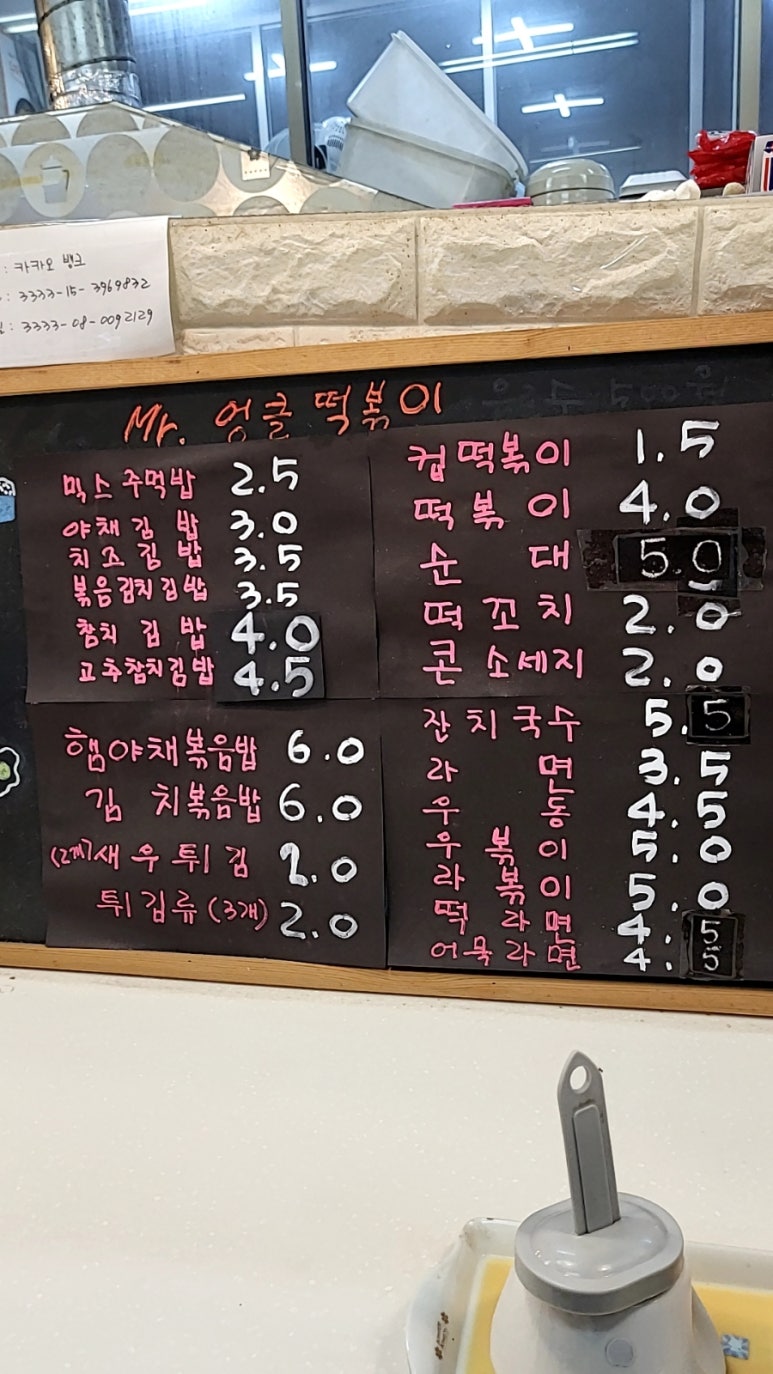 : 카카오 뱅크
: 3333-15-3969832
: 3333-08-0092129
Mr. 엉클 떡볶이
믹스주먹밥 2.5
야채김밥 3.0
치즈김밥 3.5
볶음김치김밥 3.5
참치김밥 4.0
고추참치김밥 4.5
햄야채볶음밥 6.0
김치볶음밥 6.0
(2개)새우튀김 2.0
튀김류(3개) 2.0
컵떡볶이 1.5
떡볶이 4.0
순대 5.0
떡꼬치 2.0
콘소세지 2.0
잔치국수 5.5
라면 3.5
우동 4.5
우볶이 5.0
라볶이 5.0
떡라면 4.5
어묵라면 4.5